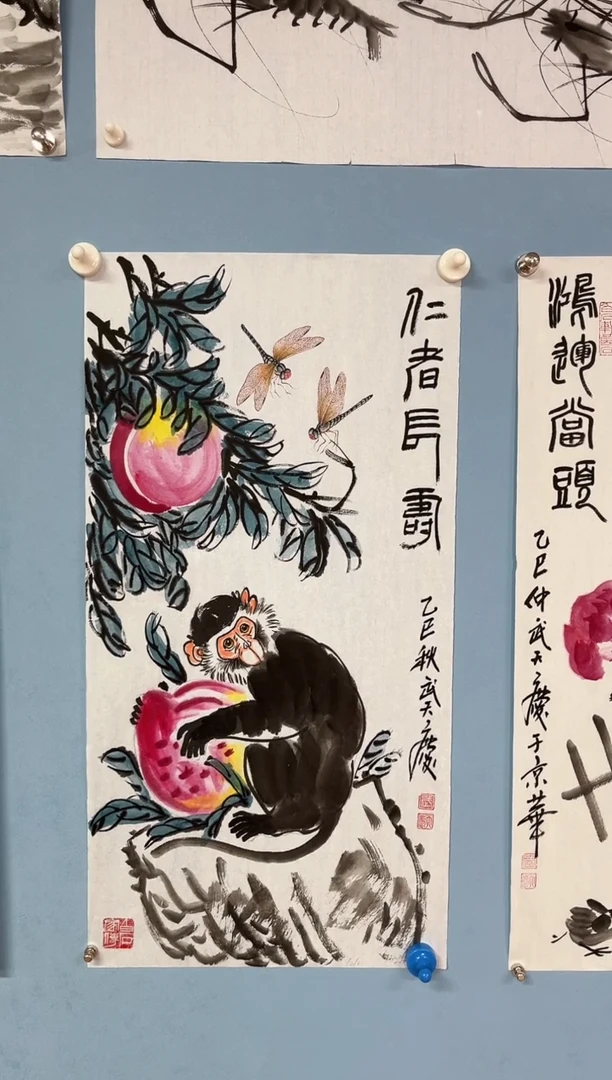 仁者長壽
乙巳秋武天慶
鴻運當頭
乙巳仲武天慶于京華